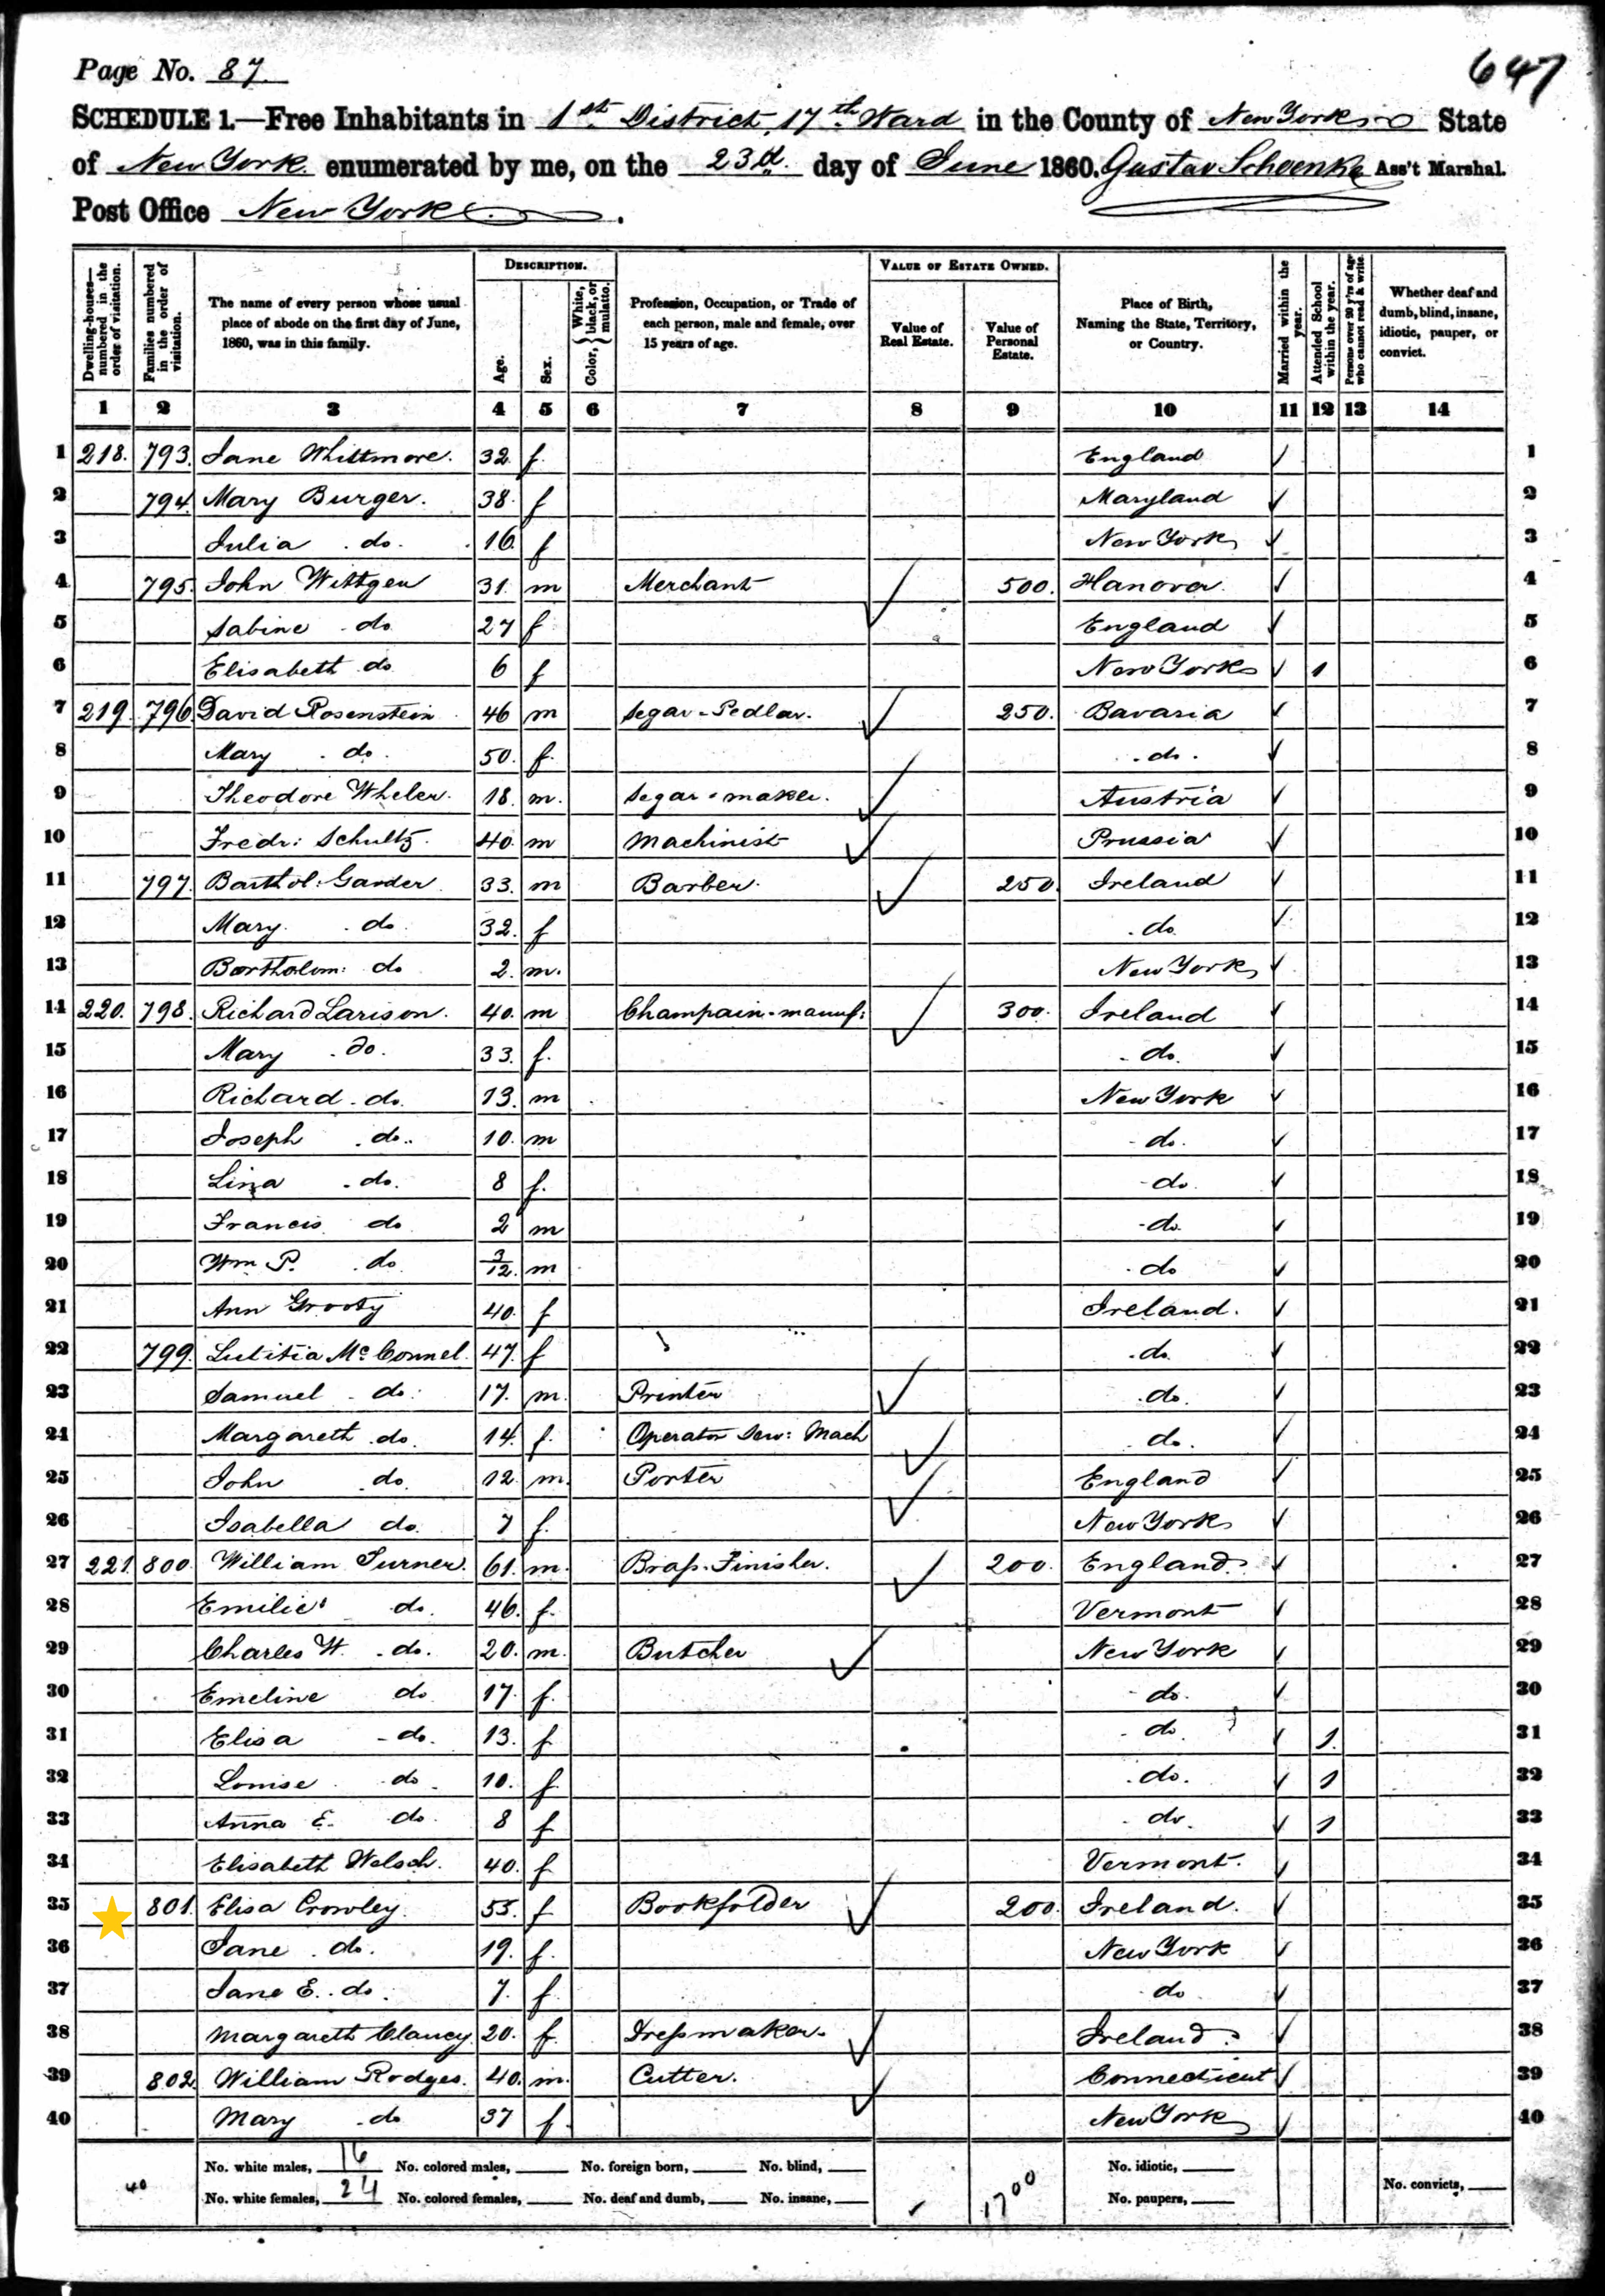 Page No. 87.
647
SCHEDULE 1.—Free Inhabitants in 1st District, 17th Ward in the County of New York State
of New York enumerated by me, on the 23d. day of June 1860. Gustav Schoenke Ass't Marshal.
Post Office New York.
Dwelling-houses—numbered in the order of visitation.
Families numbered in the order of visitation.
The name of every person whose usual place of abode on the first day of June, 1860, was in this family.
DESCRIPTION.
Age.
Sex.
Color, White, black, or mulatto.
Profession, Occupation, or Trade of each person, male and female, over 15 years of age.
VALUE OF ESTATE OWNED.
Value of Real Estate.
Value of Personal Estate.
Place of Birth, Naming the State, Territory, or Country.
Married within the year.
Attended School within the year.
Persons over 20 y'rs of age who cannot read & write.
Whether deaf and dumb, blind, insane, idiotic, pauper, or convict.
1 2 3 4 5 6 7 8 9 10 11 12 13 14
1 218. 793. Jane Whittmore. 32. f. England 1
2 794. Mary Burger. 38. f Maryland 2
3 Julia . do. 16. f New York 3
4 795. John Wittgen 31. m Merchant 500. Hanover. 4
5 Sabine do 27 f England 5
6 Elisabeth do 6 f New York 1 6
7 219. 796. David Rosenstein 46 m Segar-Pedlar. 250. Bavaria 7
8 Mary . do. 50. f. . do . 8
9 Theodore Wheler. 18. m. Segar-maker. Austria 9
10 Fredr: Schultz. 40. m Machinist Prussia 10
11 797. Barthol: Gander 33. m Barber. 250. Ireland 11
12 Mary. . do. 32. f . do. 12
13 Bartholom: do 2. m. New York 13
14 220. 798. Richard Larison. 40. m Champain-manuf: 300. Ireland 14
15 Mary . do. 33. f. . do. 15
16 Richard . do. 13. m New York 16
17 Joseph . do.. 10. m . do. 17
18 Lina . do. 8 f. . do. 18
19 Francis do 2 m . do. 19
20 Wm P. . do 3/12. m . do 20
21 Ann Grooty 40. f Ireland. 21
22 799. Lutitia McConnel. 47. f . do. 22
23 Samuel . do. 17. m. Printer . do. 23
24 Margareth do. 14. f. Operator Sew: Mach . do. 24
25 John . do. 12. m. Porter England 25
26 Isabella do. 7 f. New York 26
27 221. 800. William Turner. 61. m. Brass-Finisher. 200. England. 27
28 Emilie do. 46. f. Vermont 28
29 Charles W. . do. 20. m. Butcher New York 29
30 Emeline do 17. f. . do. 30
31 Elisa . do. 13. f . do. 1. 31
32 Louise . do . 10. f . do. 1 32
33 Anna E. do. 8 f . do. 1 33
34 Elisabeth Welsch. 40. f Vermont. 34
35 801. Elisa Crowley. 55. f Bookfolder 200. Ireland. 35
36 Jane . do. 19. f. New York 36
37 Jane E. . do. 7. f. do 37
38 Margareth Clancy. 20. f. Dressmaker. Ireland. 38
39 802. William Rodges. 40. m. Cutter. Connecticut 39
40 Mary . do 37 f. New York 40
40
No. white males, 16 No. colored males, No. foreign born, No. blind, No. idiotic,
No. white females, 24 No. colored females, No. deaf and dumb, No. insane, 1700 No. paupers, No. convicts,